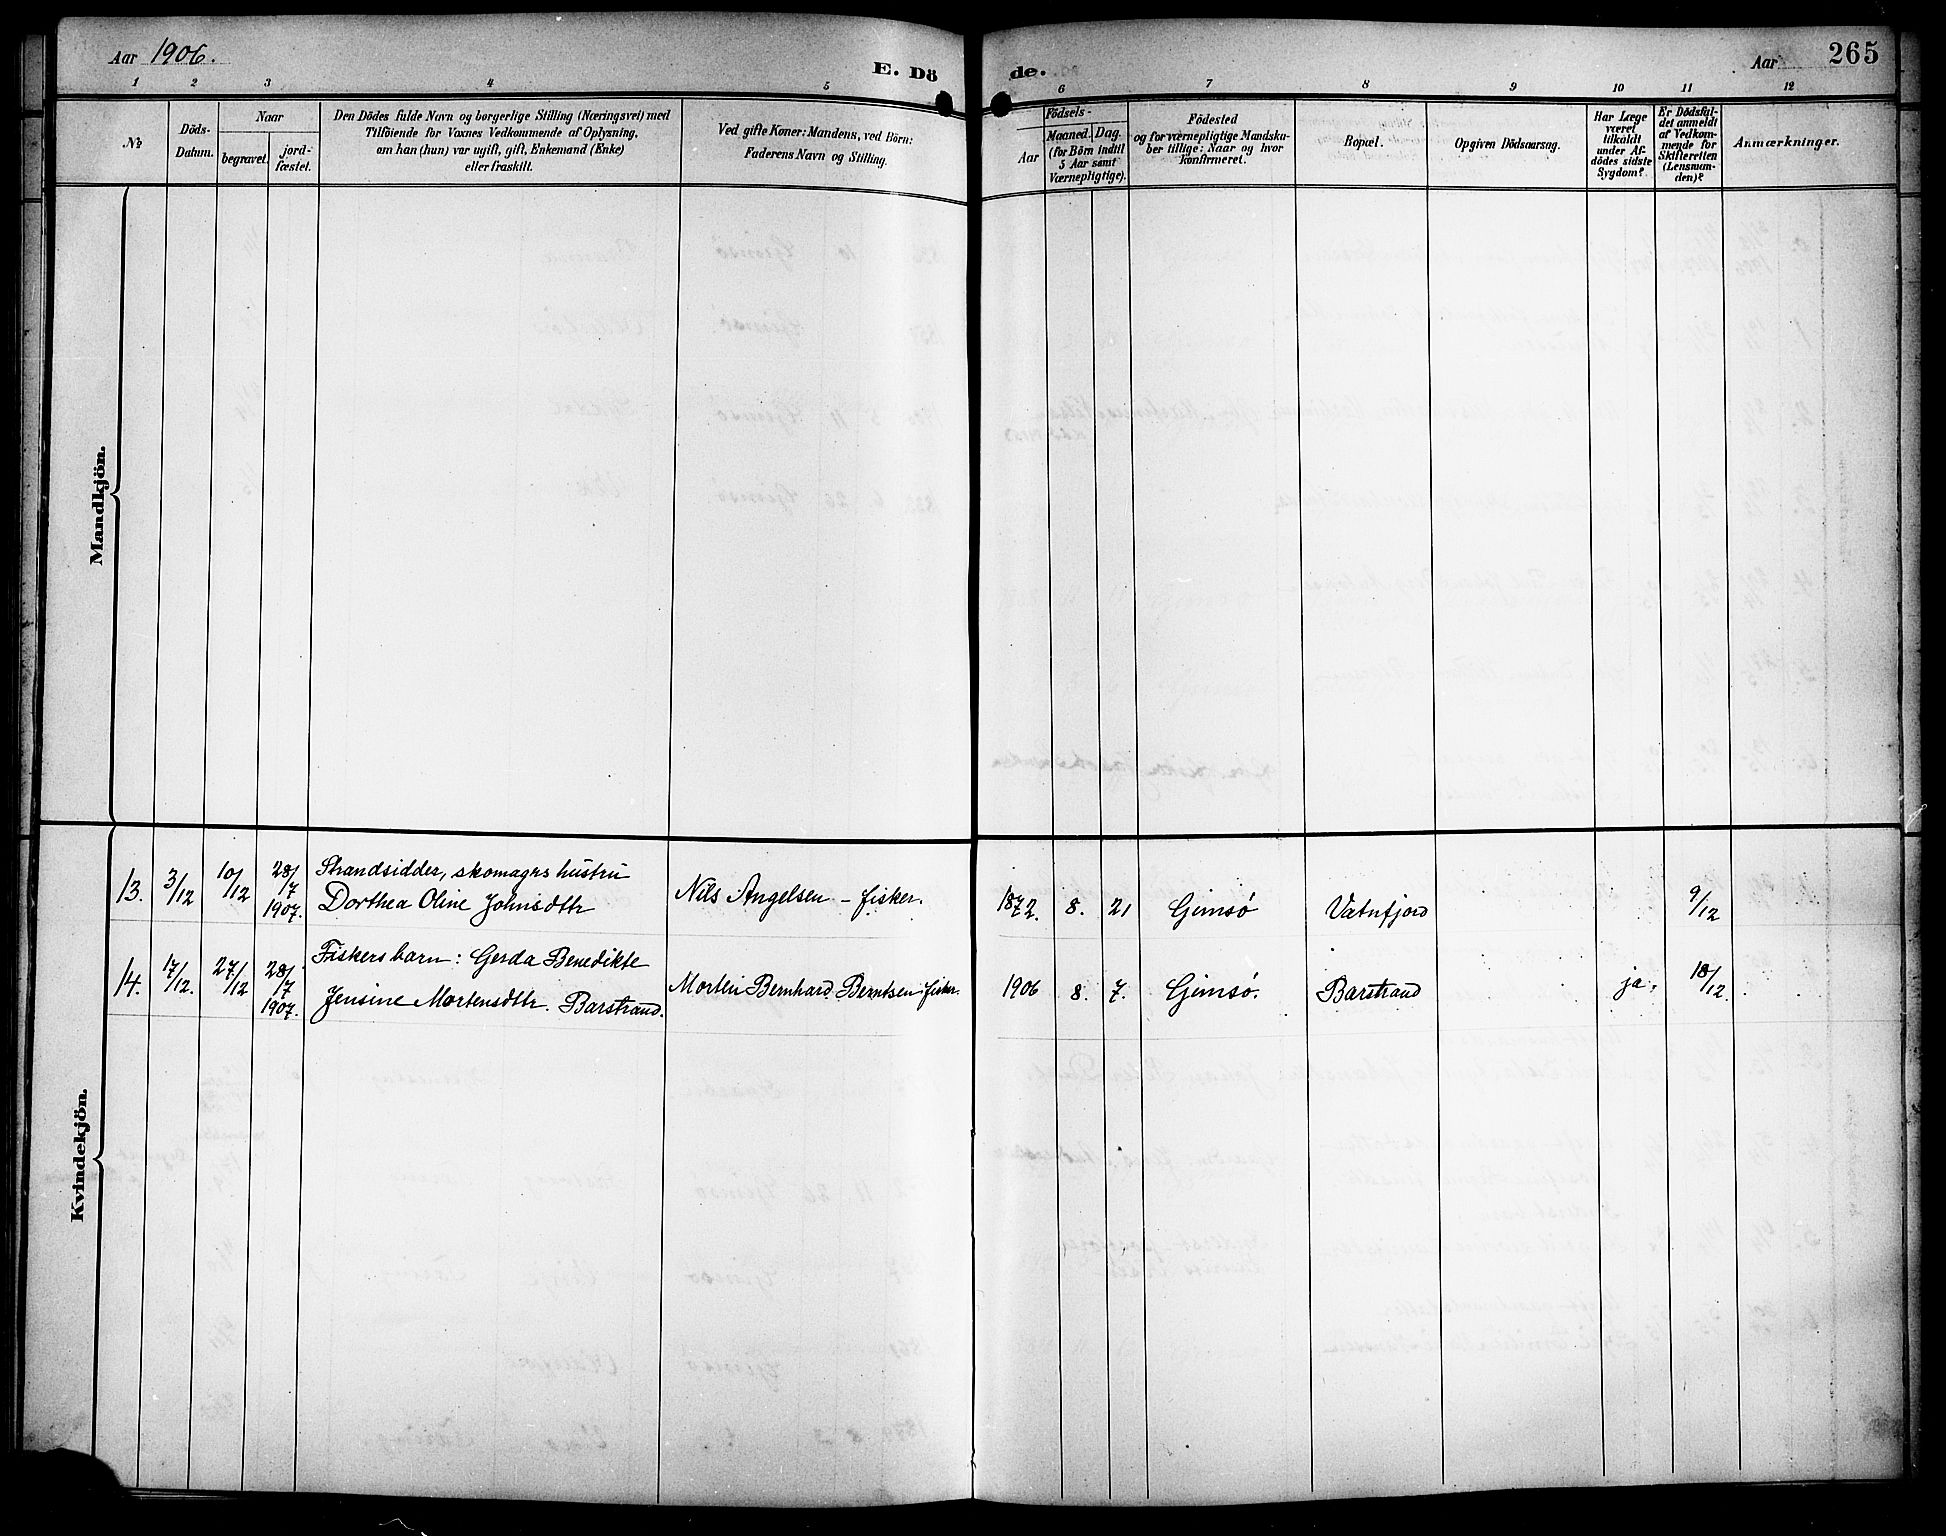 Aar 1906.
E. Dö
de.
Aar
265
1
2
3
4
5
6
7
8
9
10
11
12
No
Döds-
Datum.
Naar
begravet.
jord-
fæstet.
Den Dödes fulde Navn og borgerlige Stilling (Næringsvei) med
Tilföiende for Voxnes Vedkommende af Oplysning,
om han (hun) var ugift, gift, Enkemand (Enke)
eller fraskilt.
Ved gifte Koner: Mandens, ved Börn:
Faderens Navn og Stilling.
Födsels-
Aar
Maaned. Dag.
(for Börn indtil
5 Aar samt
Værnepligtige).
Födested
og for værnepligtige Mandska-
ber tillige: Naar og hvor
konfirmeret.
Bopæl.
Opgiven Dödsaarsag.
Har Læge
været
tilkaldt
under Af-
dödes sidste
Sygdom?
Er Dödsfal-
det anmeldt
af Vedkom-
mende for
Skifteretten
(Lensman-
den)?
Anmærkninger.
Mandkjön.
Kvindekjön.
13. 3/12 10/12 28/7 1907. Strandsidder, skomagrs hustru
Dorthea Oline Johnsdttr Nils Angelsen – fisker. 1872. 8. 21 Gimsö Vatnfjord 9/12
14. 17/12. 27/12 28/7 1907. Fiskers barn: Gerda Benedikte
Jensine Mortensdttr. Barstrand. Morten Bernhard Berntsen fisker. 1906 8. 7. Gimsö. Barstrand ja, 18/12.